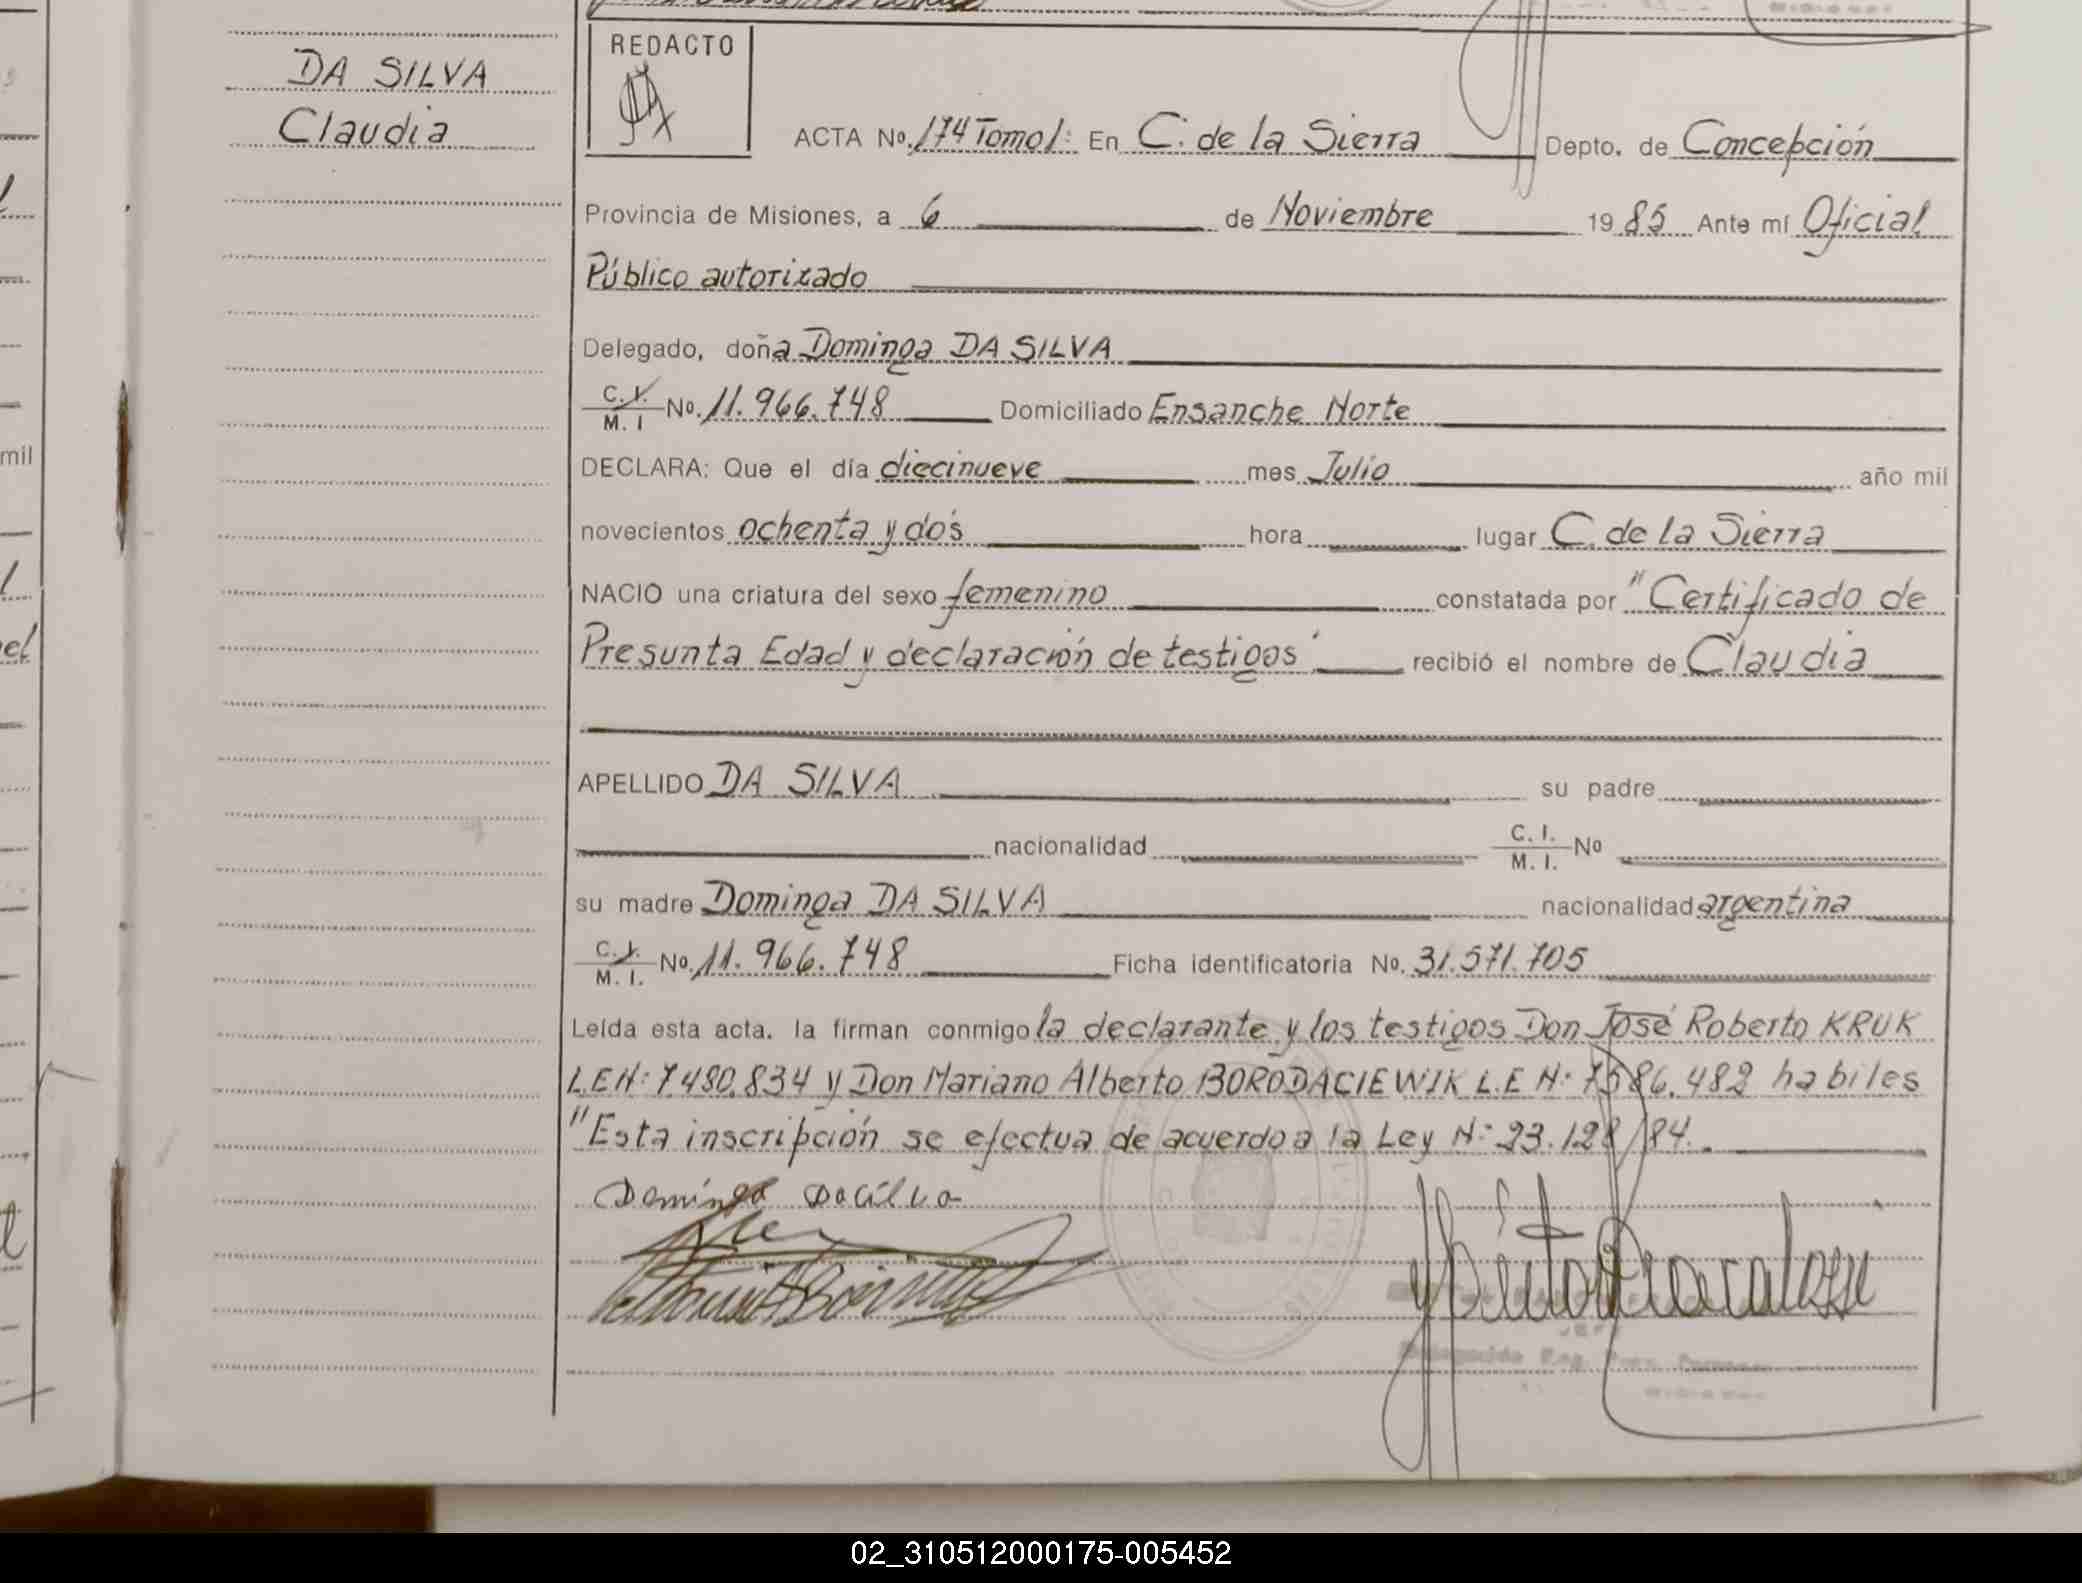 DA SILVA
Claudia
REDACTO
ACTA Nº 174 Tomo 1: En C. de la Sierra Depto. de Concepción
Provincia de Misiones, a 6 de Noviembre 1985 Ante mí Oficial
Público autorizado
Delegado, doña Dominga DA SILVA
C. I. / M. I Nº. 11.966.748 Domiciliado Ensanche Norte
DECLARA: Que el día diecinueve mes Julio año mil
novecientos ochenta y dós hora lugar C. de la Sierra
NACIO una criatura del sexo femenino constatada por "Certificado de
Presunta Edad y declaración de testigos" recibió el nombre de Claudia
APELLIDO DA SILVA su padre
nacionalidad C. I. / M. I. Nº
su madre Dominga DA SILVA nacionalidad argentina
C. I. / M. I. Nº. 11.966.748 Ficha identificatoria Nº. 31.571.705
Leída esta acta. la firman conmigo la declarante y los testigos Don José Roberto KRUK
L E N: 7.480.834 y Don Mariano Alberto BORODACIEWIK L.E N: 7586.482 habiles
"Esta inscripción se efectua de acuerdo a la Ley N: 23.128/84.
Dominga Dacilva
mil
02_310512000175-005452